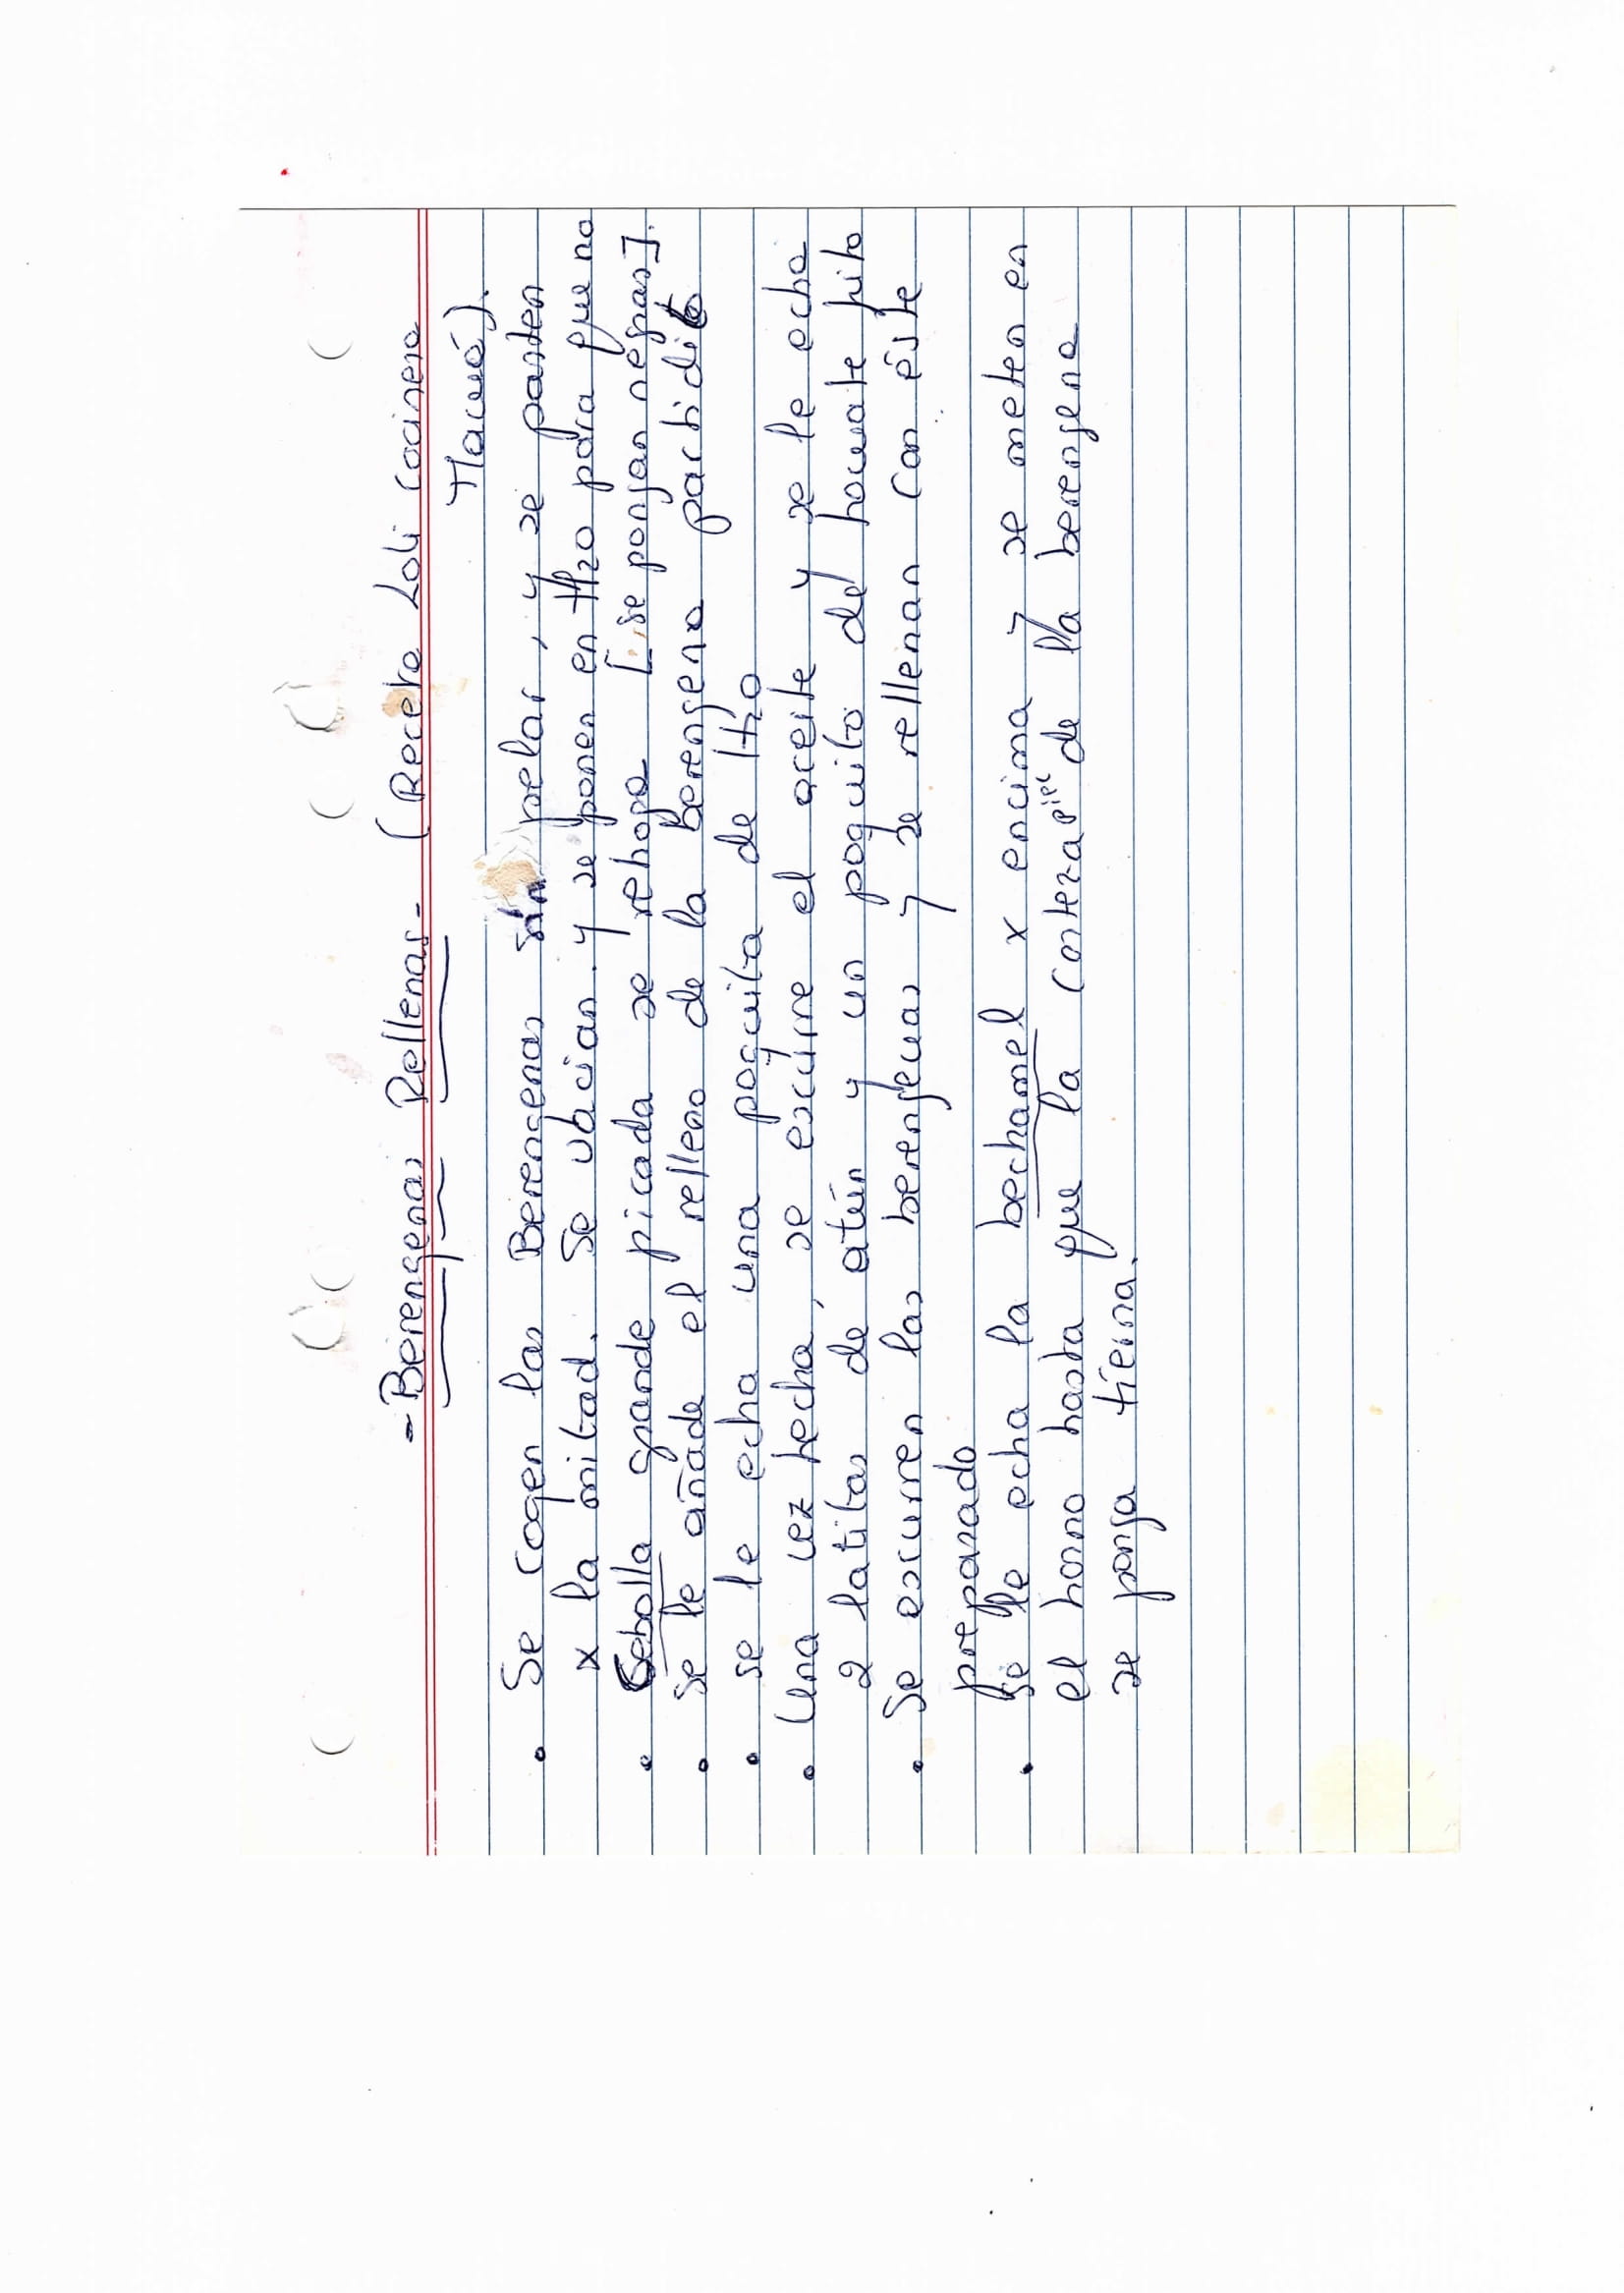 - Berengenas Rellenas - (Receta Loli cocinera
).
• Se cogen las Berengenas sin pelar, y se parten
x la mitad. Se vacian. y se ponen en H2O para que no
• Cebolla grande picada se rehoga [se pongan negras].
• se le añade el relleno de la berengena partidito
• se le echa una poquita de H2O
• Una vez hecha, se escurre el aceite y se le echa
2 latitas de atún y un poquito de tomate frito
• Se escurren las berengenas y se rellenan con éste
preparado
• Se le echa la bechamel x encima y se meten en
el horno hasta que la corteza piel de la berengena
se ponga tierna.